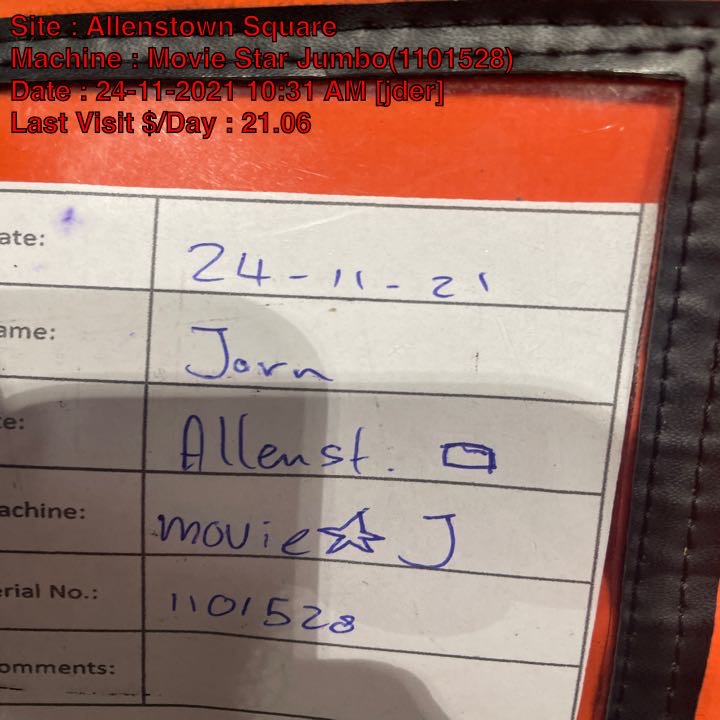 Site : Allenstown Square
Machine : Movie Star Jumbo(1101528)
Date : 24-11-2021 10:31 AM [jder]
Last Visit $/Day : 21.06
ate: 24-11-21
ame: Jorn
e: Allenst.
achine: movie J
erial No.: 1101528
omments: